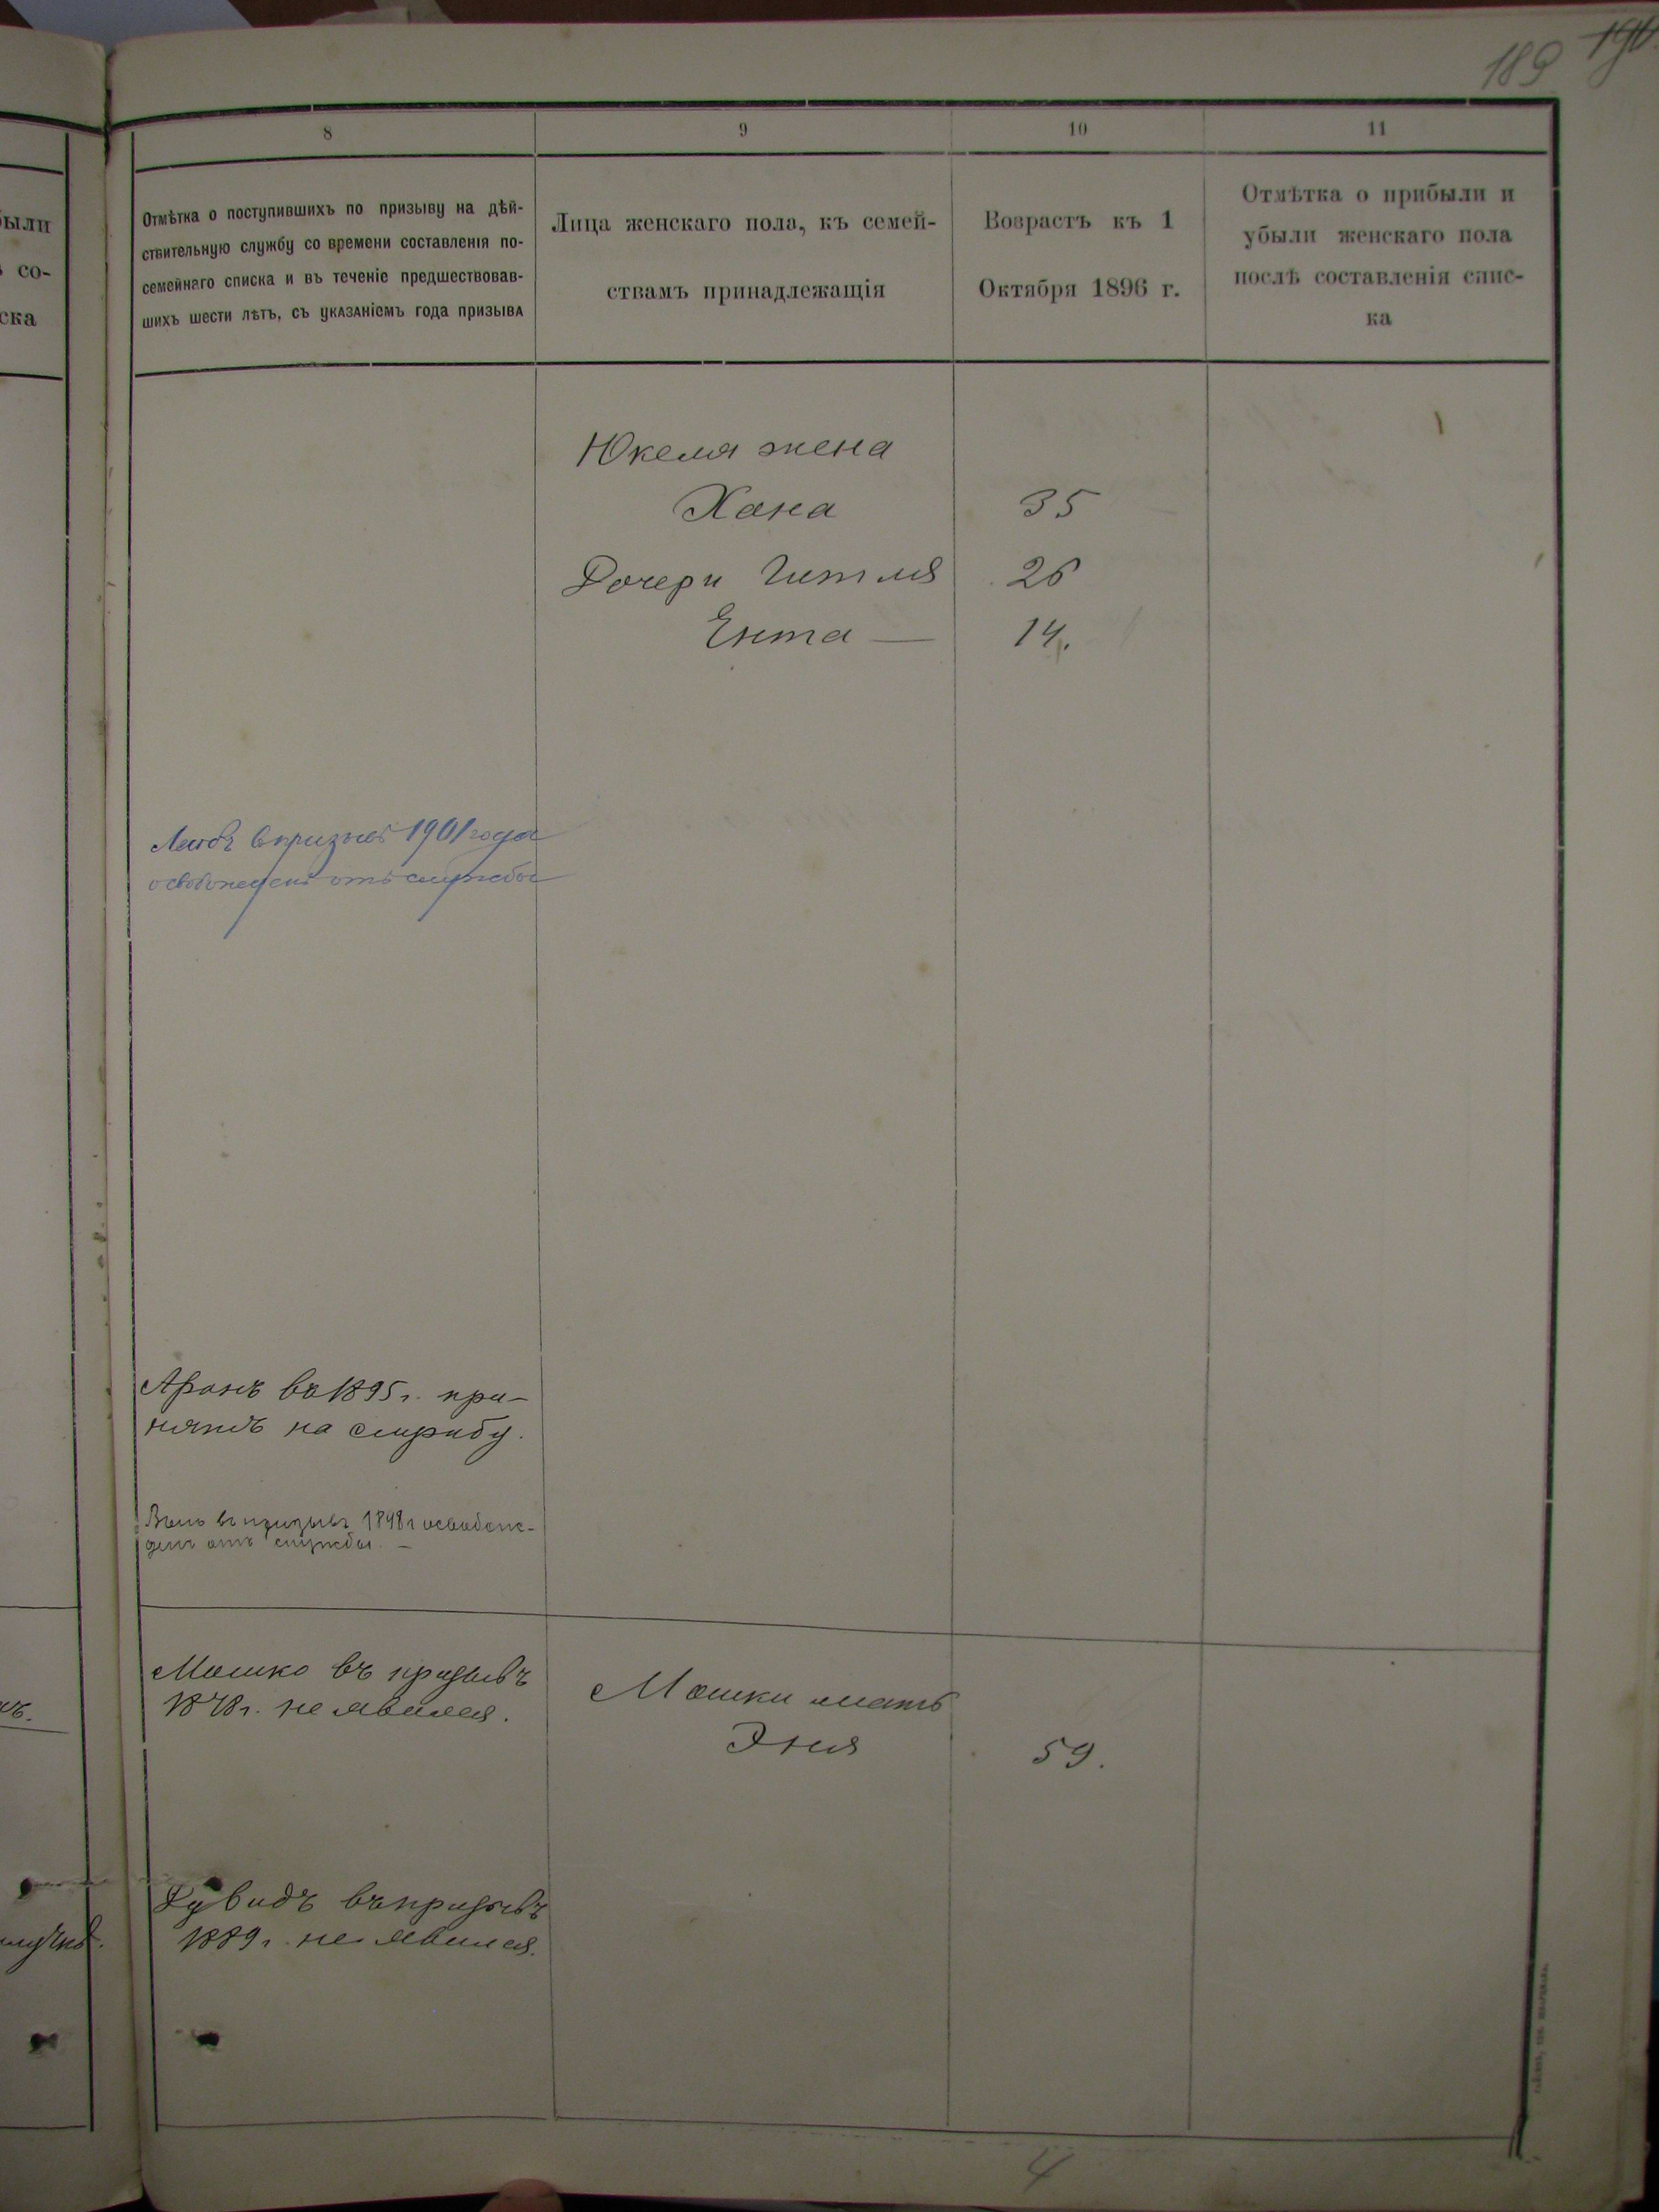 189 190
8 9 10 11
Отмѣтка о поступившихъ по призыву на дѣй-
ствительную службу со времени составленія по-
семейнаго списка и въ теченіе предшествовав-
шихъ шести лѣтъ, съ указаніемъ года призыва
Лица женскаго пола, къ семей-
ствамъ принадлежащія
Возрастъ къ 1
Октября 1896 г.
Отмѣтка о прибыли и
убыли женскаго пола
послѣ составленія спис-
ка
ыли
со-
ска
Юкеля жена
Хана 35
Дочери Гитля 26
Ента — 14.
Лейбъ въ призывъ 1901 года
освобожденъ отъ службы
Аронъ въ 1895 г. при-
нятъ на службу.
въ призывъ 1898 г освобож-
денъ отъ службы. —
Мошко въ призывъ
1878 г. не явился.
Мошки мать
Эня 59.
Дувидъ въ призывъ
1889 г. не явился.
4